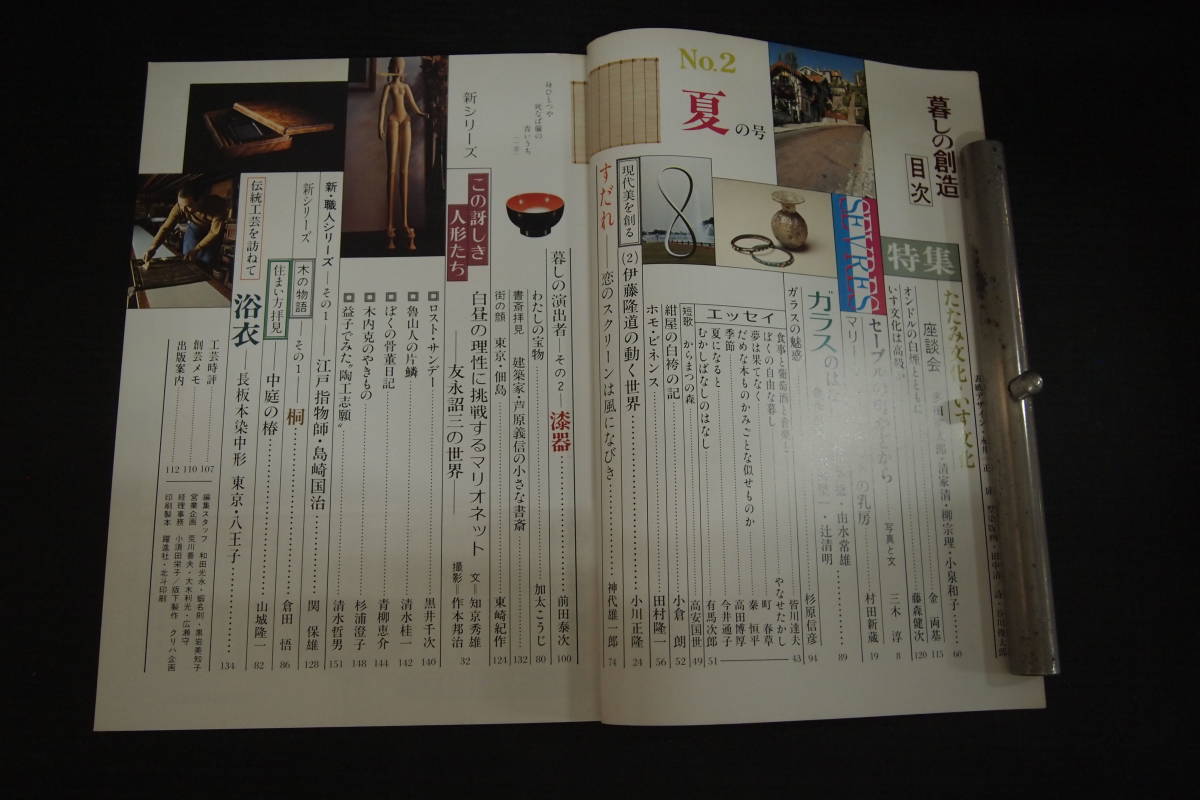 暮しの創造
目次
No.2
夏の号
特集
たたみ文化・いす文化
座談会
清家清・柳宗理・小泉和子
60
オンドルの白煙とともに
金両基
115
いす文化は高級か
藤森健次
120
SEVRES
セーブル
三木淳
8
写真と文
マリー
の乳房
村田新蔵
19
ガラスのは
由水常雄
89
辻清明
ガラスの魅惑
杉原信彦
94
エッセイ
食事と葡萄酒と音楽と
皆川達夫
43
ぼくの自由な暮し
やなせたかし
夢は果てなく
町春草
だめな本ものかみごとな似せものか
秦恒平
季節
高田博厚
夏になると
今井通子
むかしばなしのはなし
有馬次郎
51
短歌 からまつの森
高安国世
49
紺屋の白袴の記
小倉朗
52
ホモ・ビネンス
田村隆一
56
現代美を創る
(2)伊藤隆道の動く世界
小川正隆
24
すだれ——恋のスクリーンは風になびき
神代雄一郎
74
身ひとつや
死なば簾の
青いうち
暮しの演出者——その2——漆器
前田泰次
100
わたしの宝物
加太こうじ
80
書斎拝見 建築家・芦原義信の小さな書斎
132
街の顔 東京・佃島
東崎紀作
124
新シリーズ
この訝しき
人形たち
白昼の理性に挑戦するマリオネット
文=知京秀雄
32
——友永詔三の世界——
撮影=作本邦治
ロスト・サンデー
黒井千次
140
魯山人の片鱗
清水桂一
142
ぼくの骨董日記
青柳恵介
144
木内克のやきもの
杉浦澄子
148
益子でみた“陶工志願”
清水哲男
151
新・職人シリーズ——その1——江戸指物師・島崎国治
関保雄
128
新シリーズ
木の物語——その1——桐
倉田悟
86
住まい方拝見
中庭の椿
山城隆一
82
伝統工芸を訪ねて
浴衣
長板本染中形 東京・八王子
134
工芸時評
107
創芸メモ
110
出版案内
112
編集スタッフ 和田光永・蝦名則・黒岩美知子
営業企画 荒川善夫・大木利光・広瀬守
経理事務 小須田栄子/版下製作 クリハ企画
印刷製本 躍進社・北斗印刷